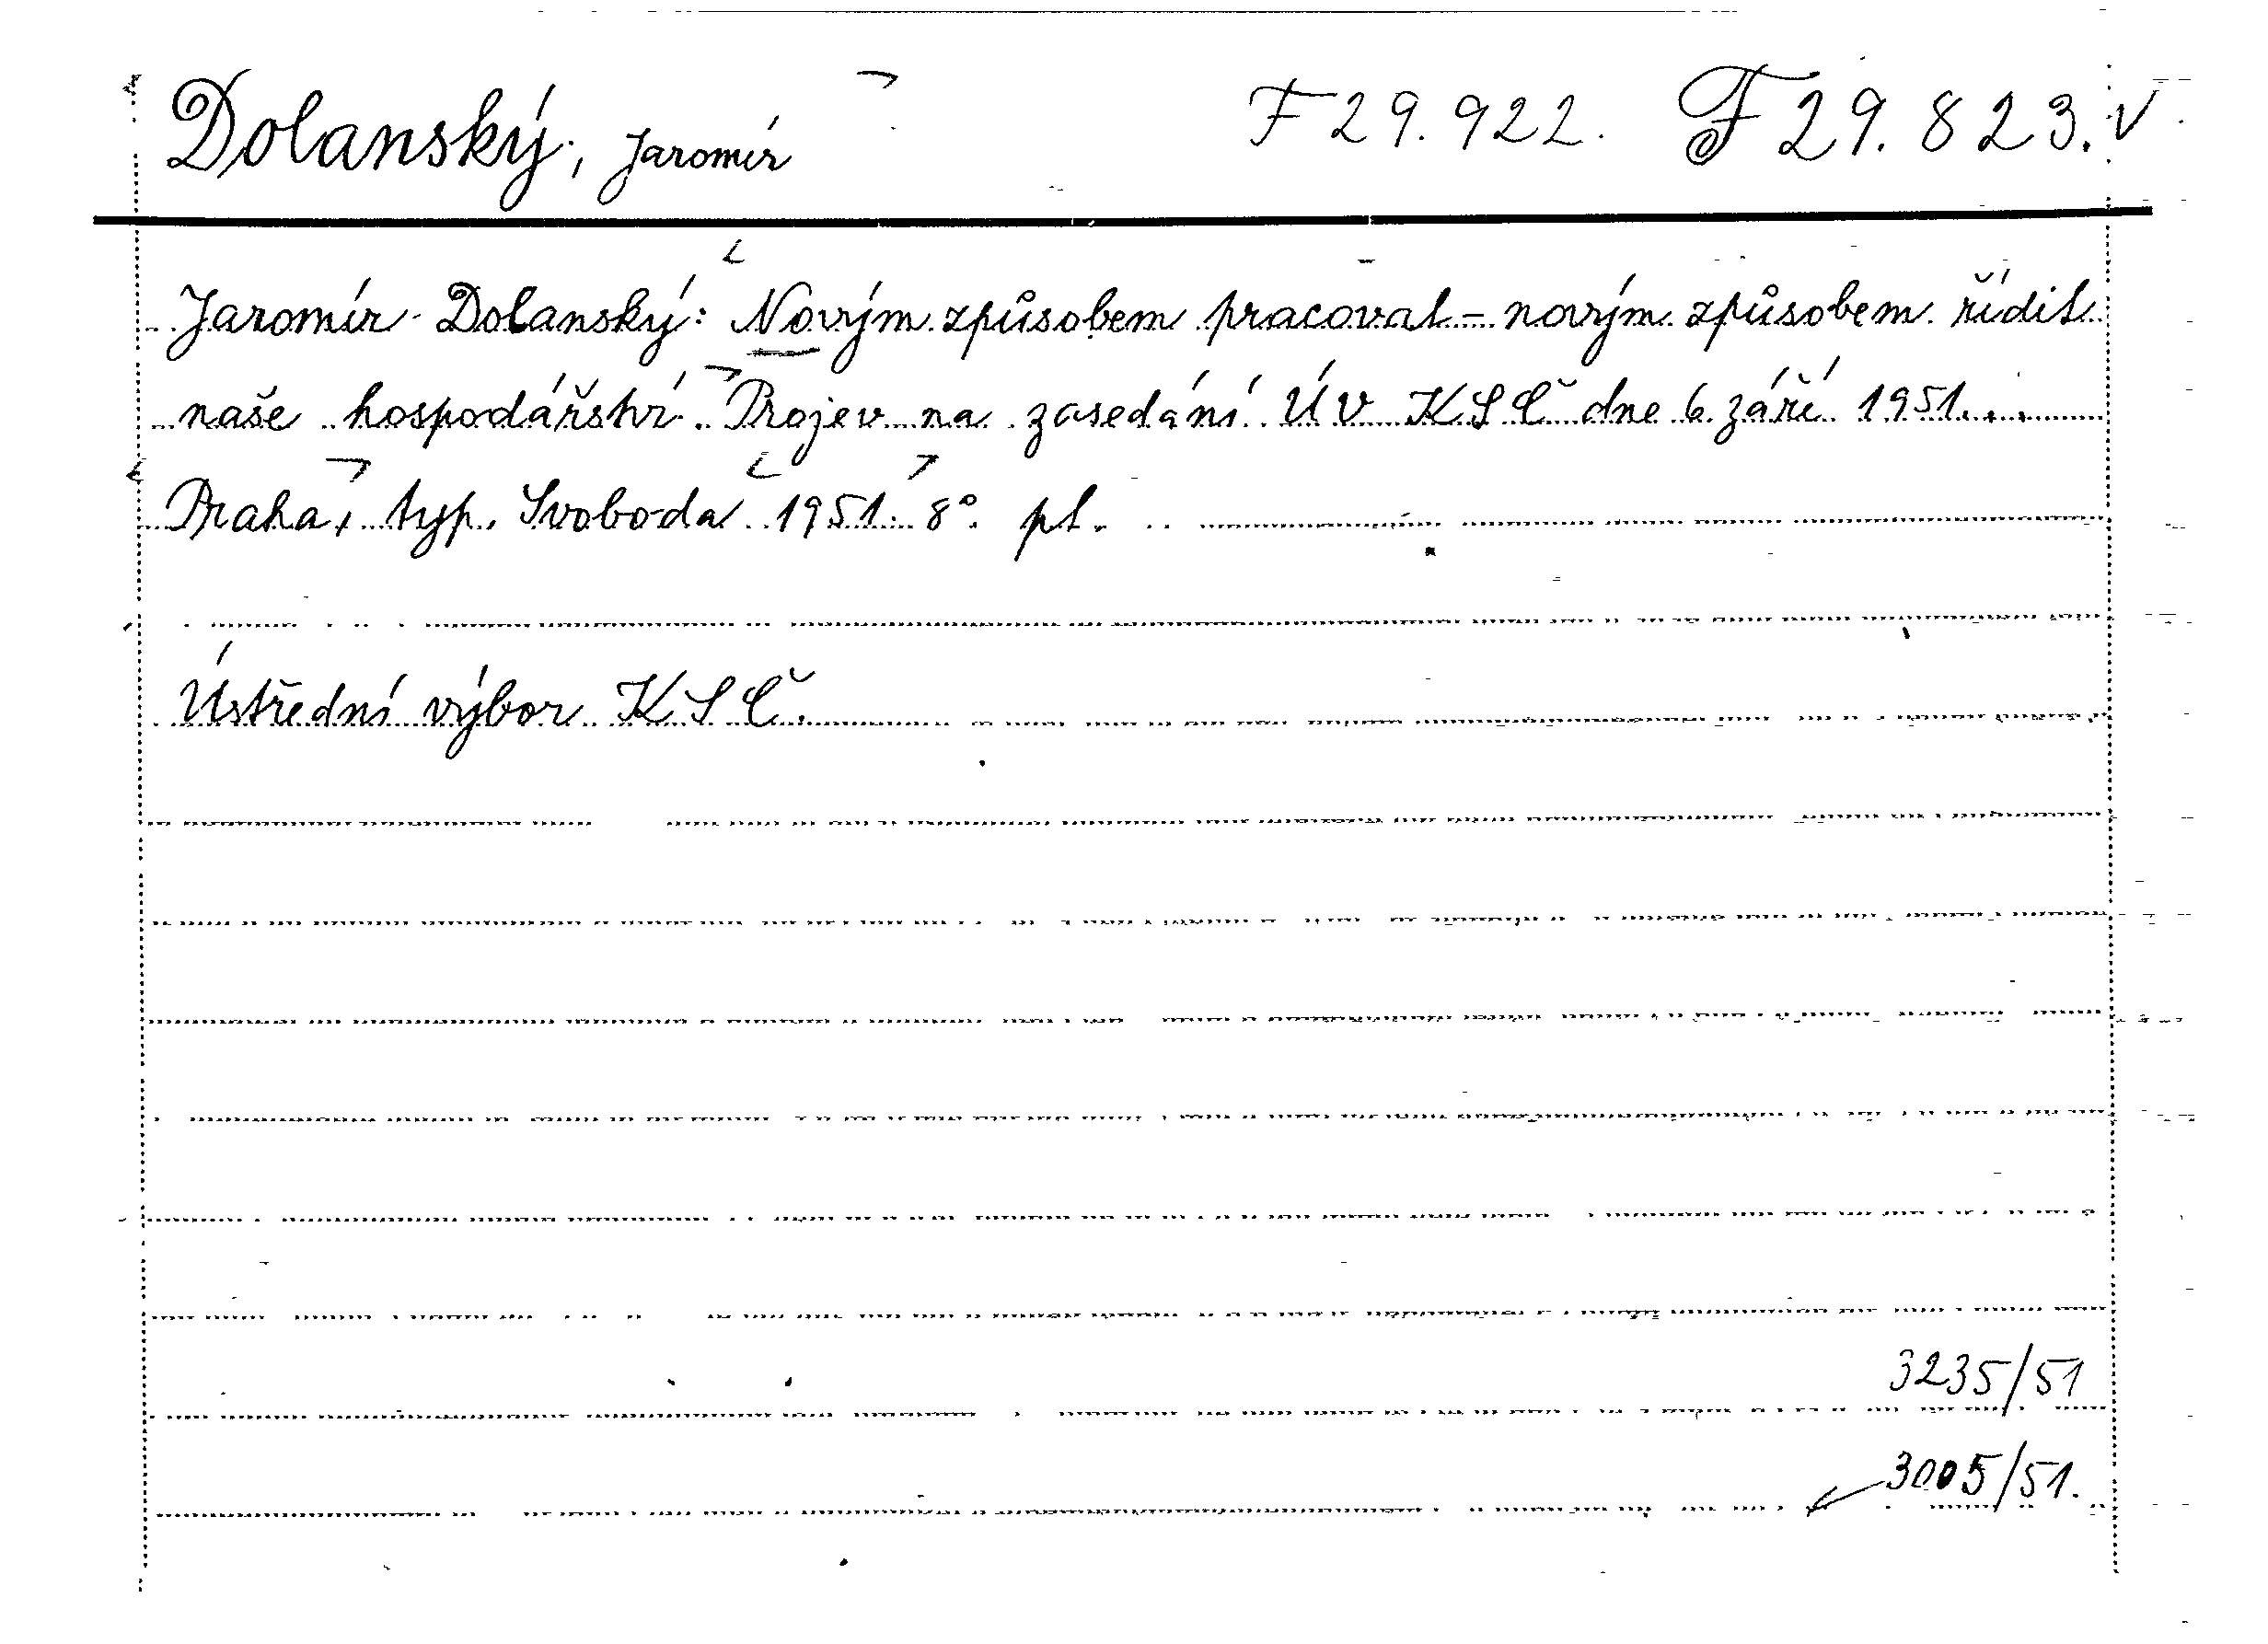 Dolanský, Jaromír F 29.922. F 29.823.
Jaromír Dolanský: Novým způsobem pracovat - novým způsobem řídit
naše hospodářství. Projev na zasedání ÚV KSČ dne 6. září 1951.
Praha, typ. Svoboda 1951. 8°. pt.
Ústřední výbor KSČ.
3235/51
3005/51.